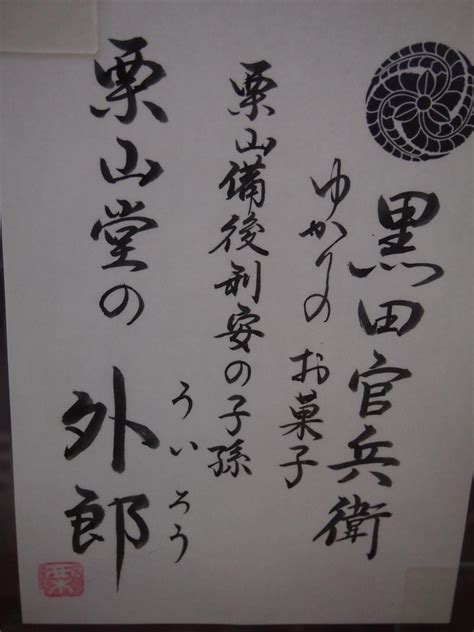 黒田官兵衛
ゆかりの お菓子
栗山備後利安の子孫
栗山堂の 外郎
ういろう
栗